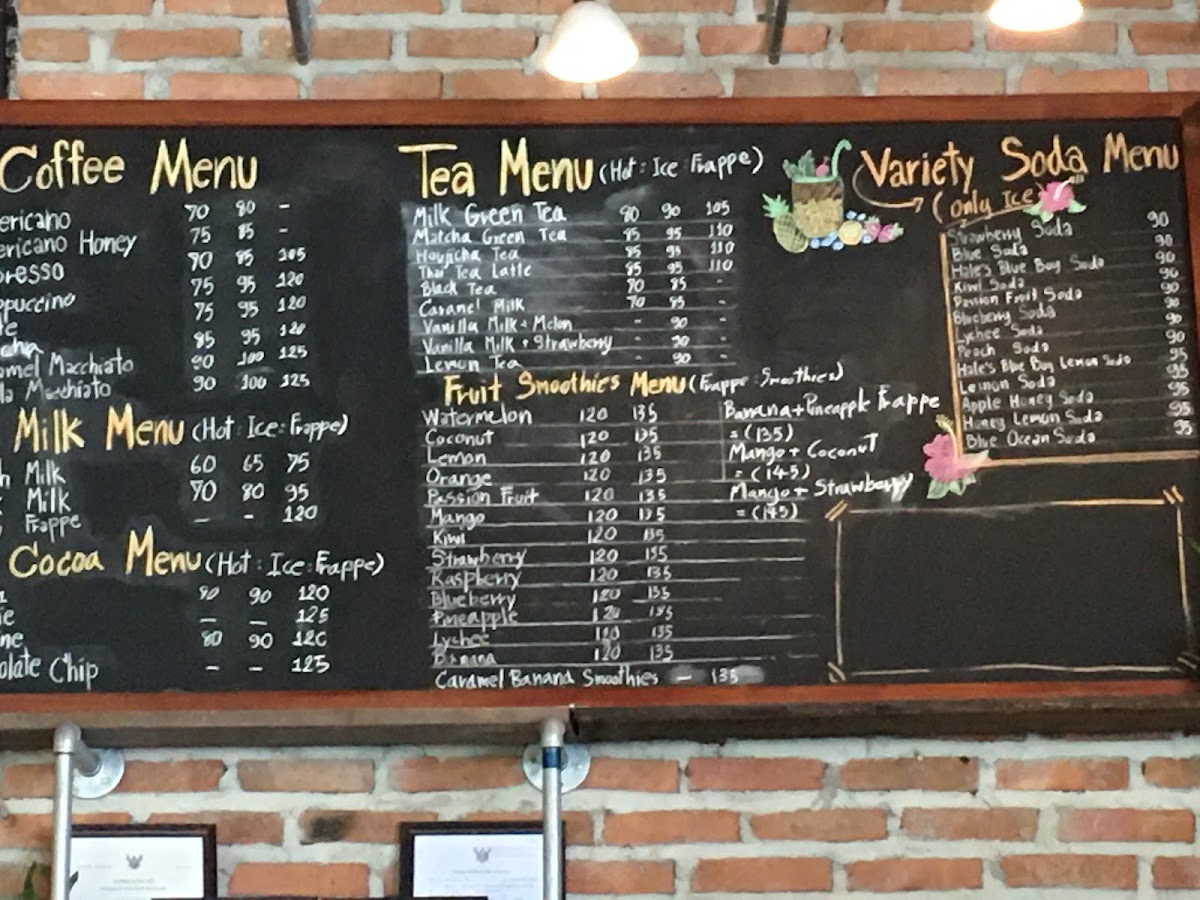 Coffee Menu
ericano 70 80 -
ericano Honey 75 85 -
presso 70 85 105
ppuccino 75 95 120
te 75 95 120
cha 85 95 120
amel Macchiato 90 100 125
lla Macchiato 90 100 125
Milk Menu (Hot : Ice : Frappe)
h Milk 60 65 75
Milk 70 80 95
Frappe - - 120
Cocoa Menu (Hot : Ice : Frappe)
a 80 90 120
ie - - 125
ne 80 90 120
olate Chip - - 125
Tea Menu (Hot : Ice Frappe)
Milk Green Tea 80 90 105
Matcha Green Tea 85 95 110
Houjicha Tea 85 95 110
Thai Tea Latte 85 95 110
Black Tea 70 85 -
Caramel Milk 70 85 -
Vanilla Milk + Melon - 90 -
Vanilla Milk + Strawberry - 90 -
Lemon Tea - 90 -
Fruit Smoothies Menu (Frappe : Smoothies)
Watermelon 120 135
Coconut 120 135
Lemon 120 135
Orange 120 135
Passion Fruit 120 135
Mango 120 135
Kiwi 120 135
Strawberry 120 135
Raspberry 120 135
Blueberry 120 135
Pineapple 120 135
Lychee 120 135
Banana 120 135
Caramel Banana Smoothies - 135
Banana + Pineapple Frappe
= (135)
Mango + Coconut
= (145)
Mango + Strawberry
= (145)
Variety Soda Menu
(Only Ice)
Strawberry Soda 90
Blue Soda 90
Hale's Blue Boy Soda 90
Kiwi Soda 90
Passion Fruit Soda 90
Blueberry Soda 90
Lychee Soda 90
Peach Soda 90
Hale's Blue Boy Lemon Soda 95
Lemon Soda 95
Apple Honey Soda 95
Honey Lemon Soda 95
Blue Ocean Soda 95